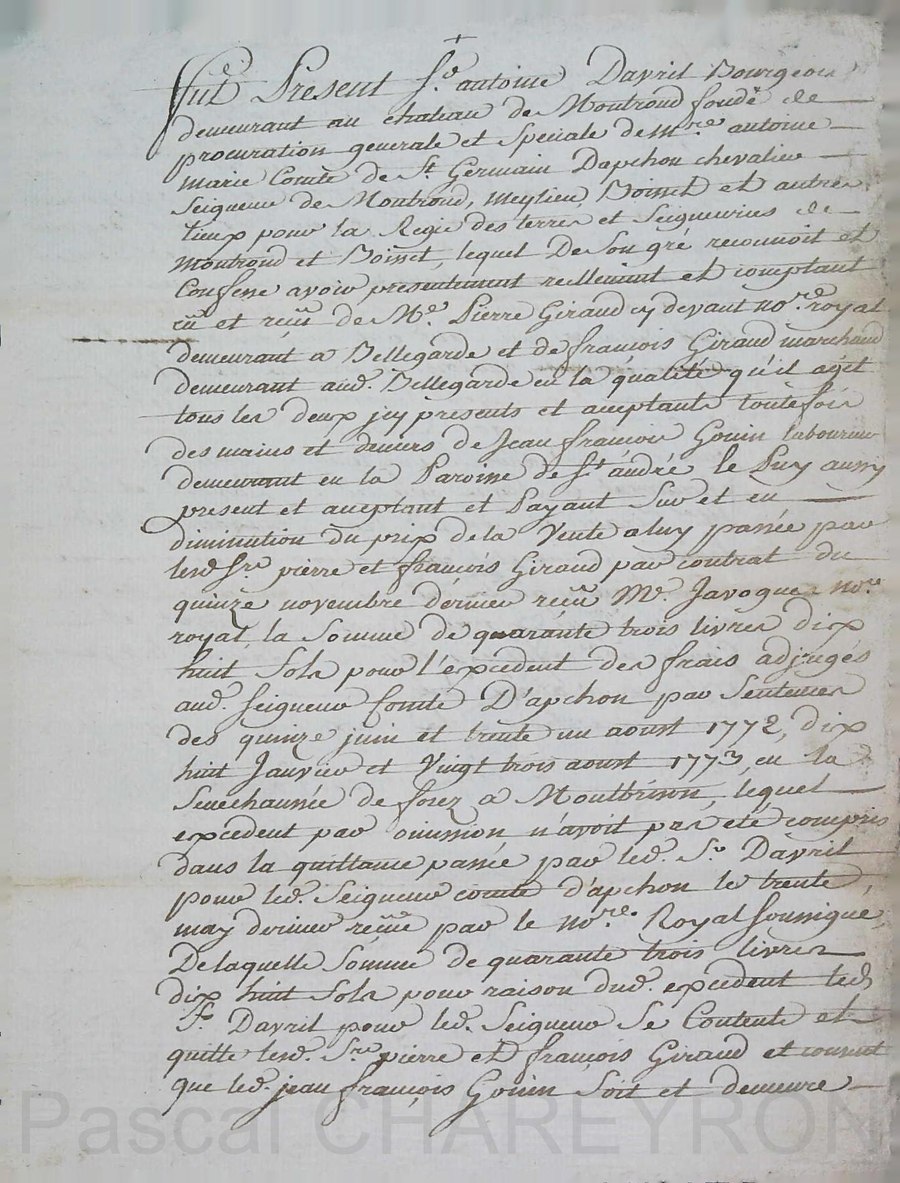 fut Present Sr. antoine Davril Bourgeois
demeurant au chateau de Montrond fondé de
procuration generale et Speciale de mre antoine
marie Comte de St Germain Dapchon chevalier
Seigneur de Montrond, Meylieu, Boisset et autres
lieux pour la Regie des terres et Seigneuries de
Montrond et Boisset, lequel De Son gré reconnoit et
Confesse avoir presentement reellement et comptant
eu et reçu de Me. Pierre Giraud cy devant nore royal
demeurant a Bellegarde et de françois Giraud marchand
demeurant aud. Bellegarde en la qualité qu'il agit
tous les deux icy presents et aceptants toutefois
des mains et deniers de Jean françois Gouin laboureur
demeurant en la Paroisse de St andré le Puy aussy
present et aceptant et Payant Sur et en
diminution du prix de la Vente a luy passée par
lesd. Srs pierre et françois Giraud par contrat du
quinze novembre dernier reçu Me. Javogues nore
royal, la Somme de quarante trois livres dix
huit Sols pour l'excedent des frais adjugés
aud. Seigneur Comte D'apchon par Sentences
des quinze juin et trente un aoust 1772, dix
huit Janvier et Vingt trois aoust 1773, en la
Senechaussée de forez a Montbrison, lequel
excedent par omission n'avoit pas eté compris
dans la quittance passée par led. Sr. Davril
pour led. Seigneur comte d'apchon le trente
may dernier reçue par le nore. Royal Soussigné,
De laquelle Somme de quarante trois livres
dix huit Sols pour raison dud. excedent led.
Sr. Davril pour led. Seigneur Se Contente et
quitte lesd. Srs pierre et françois Giraud et consent
que led. jean françois Gouin Soit et demeure
Pascal CHAREYRON